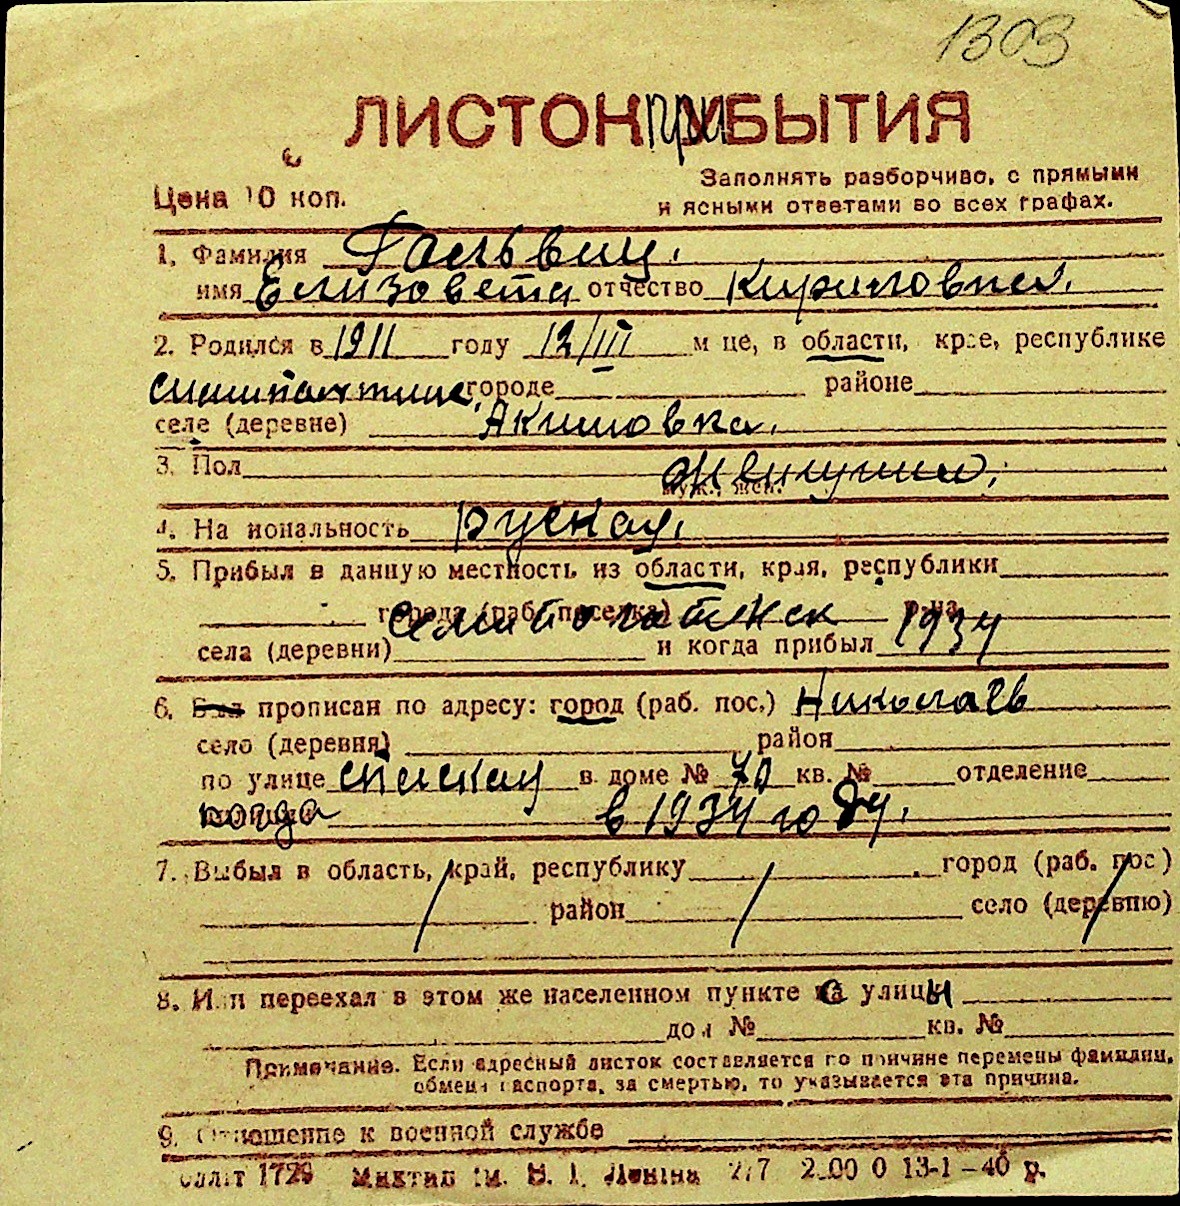 1303
ЛИСТОК прибытия
Цена 10 коп.
Заполнять разборчиво, с прямыми
и ясными ответами во всех графах.
1. Фамилия
имя Елизовета отчество Кириловна.
2. Родился в 1911 году 12/III м-це, в области, крае, республике
городе районе
селе (деревне) Акимовка.
3. Пол муж., жен.
4. Национальность руская.
5. Прибыл в данную местность из области, края, республики
города (раб. поселка) Семипалатинск р-на
села (деревни) и когда прибыл 1934
6. Был прописан по адресу: город (раб. пос.) Николаев
село (деревня) район
по улице Спаская в доме № 70 кв. № отделение
когда в 1934 году.
7. Выбыл в область, край, республику город (раб. пос)
район село (деревню)
8. Или переехал в этом же населенном пункте с улицы
дом № кв. №
Примечание. Если адресный листок составляется по причине перемены фамилии,
обмена паспорта, за смертью, то указывается эта причина.
9. Отношение к военной службе
1729 Миктип ім. В. І. Леніна 13-1-40 р.